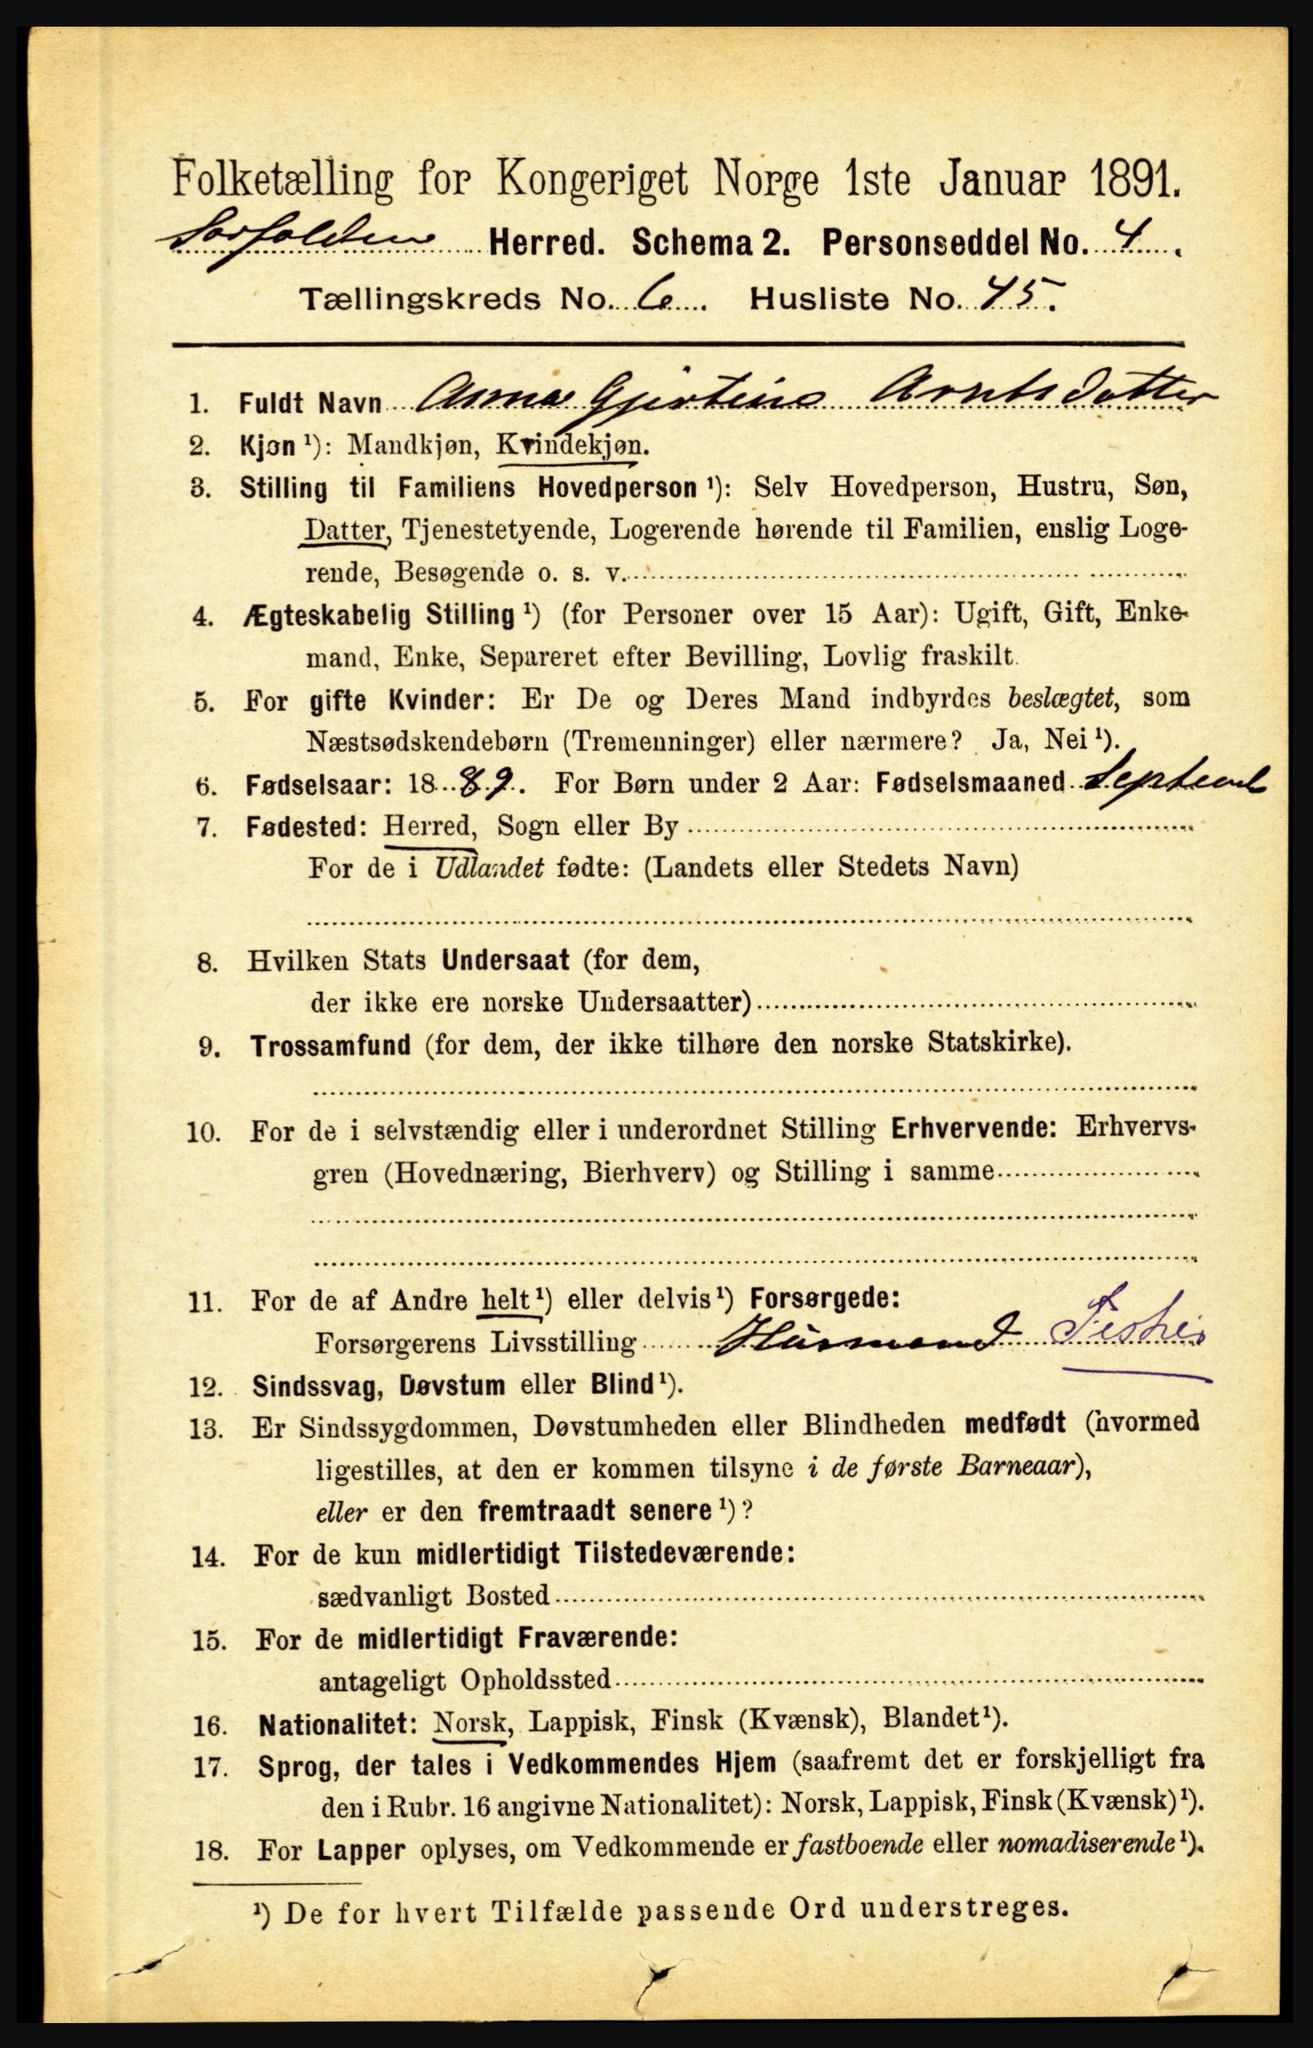 Folketælling for Kongeriget Norge 1ste Januar 1891.
Sørfolden Herred. Schema 2. Personseddel No. 4.
Tællingskreds No. 6. Husliste No. 45.
1. Fuldt Navn Anna Gjertine Arntsdatter
2. Kjøn ¹): Mandkjøn, Kvindekjøn.
3. Stilling til Familiens Hovedperson ¹): Selv Hovedperson, Hustru, Søn,
Datter, Tjenestetyende, Logerende hørende til Familien, enslig Loge-
rende, Besøgende o. s. v.
4. Ægteskabelig Stilling ¹) (for Personer over 15 Aar): Ugift, Gift, Enke-
mand, Enke, Separeret efter Bevilling, Lovlig fraskilt.
5. For gifte Kvinder: Er De og Deres Mand indbyrdes beslægtet, som
Næstsødskendebørn (Tremenninger) eller nærmere? Ja, Nei ¹).
6. Fødselsaar: 1889. For Børn under 2 Aar: Fødselsmaaned Septemb
7. Fødested: Herred, Sogn eller By
For de i Udlandet fødte: (Landets eller Stedets Navn)
8. Hvilken Stats Undersaat (for dem,
der ikke ere norske Undersaatter)
9. Trossamfund (for dem, der ikke tilhøre den norske Statskirke).
10. For de i selvstændig eller i underordnet Stilling Erhvervende: Erhvervs-
gren (Hovednæring, Bierhverv) og Stilling i samme
11. For de af Andre helt ¹) eller delvis ¹) Forsørgede:
Forsørgerens Livsstilling Husmand Fisker
12. Sindssvag, Døvstum eller Blind ¹).
13. Er Sindssygdommen, Døvstumheden eller Blindheden medfødt (hvormed
ligestilles, at den er kommen tilsyne i de første Barneaar),
eller er den fremtraadt senere ¹)?
14. For de kun midlertidigt Tilstedeværende:
sædvanligt Bosted
15. For de midlertidigt Fraværende:
antageligt Opholdssted
16. Nationalitet: Norsk, Lappisk, Finsk (Kvænsk), Blandet ¹).
17. Sprog, der tales i Vedkommendes Hjem (saafremt det er forskjelligt fra
den i Rubr. 16 angivne Nationalitet): Norsk, Lappisk, Finsk (Kvænsk) ¹).
18. For Lapper oplyses, om Vedkommende er fastboende eller nomadiserende ¹).
¹) De for hvert Tilfælde passende Ord understreges.